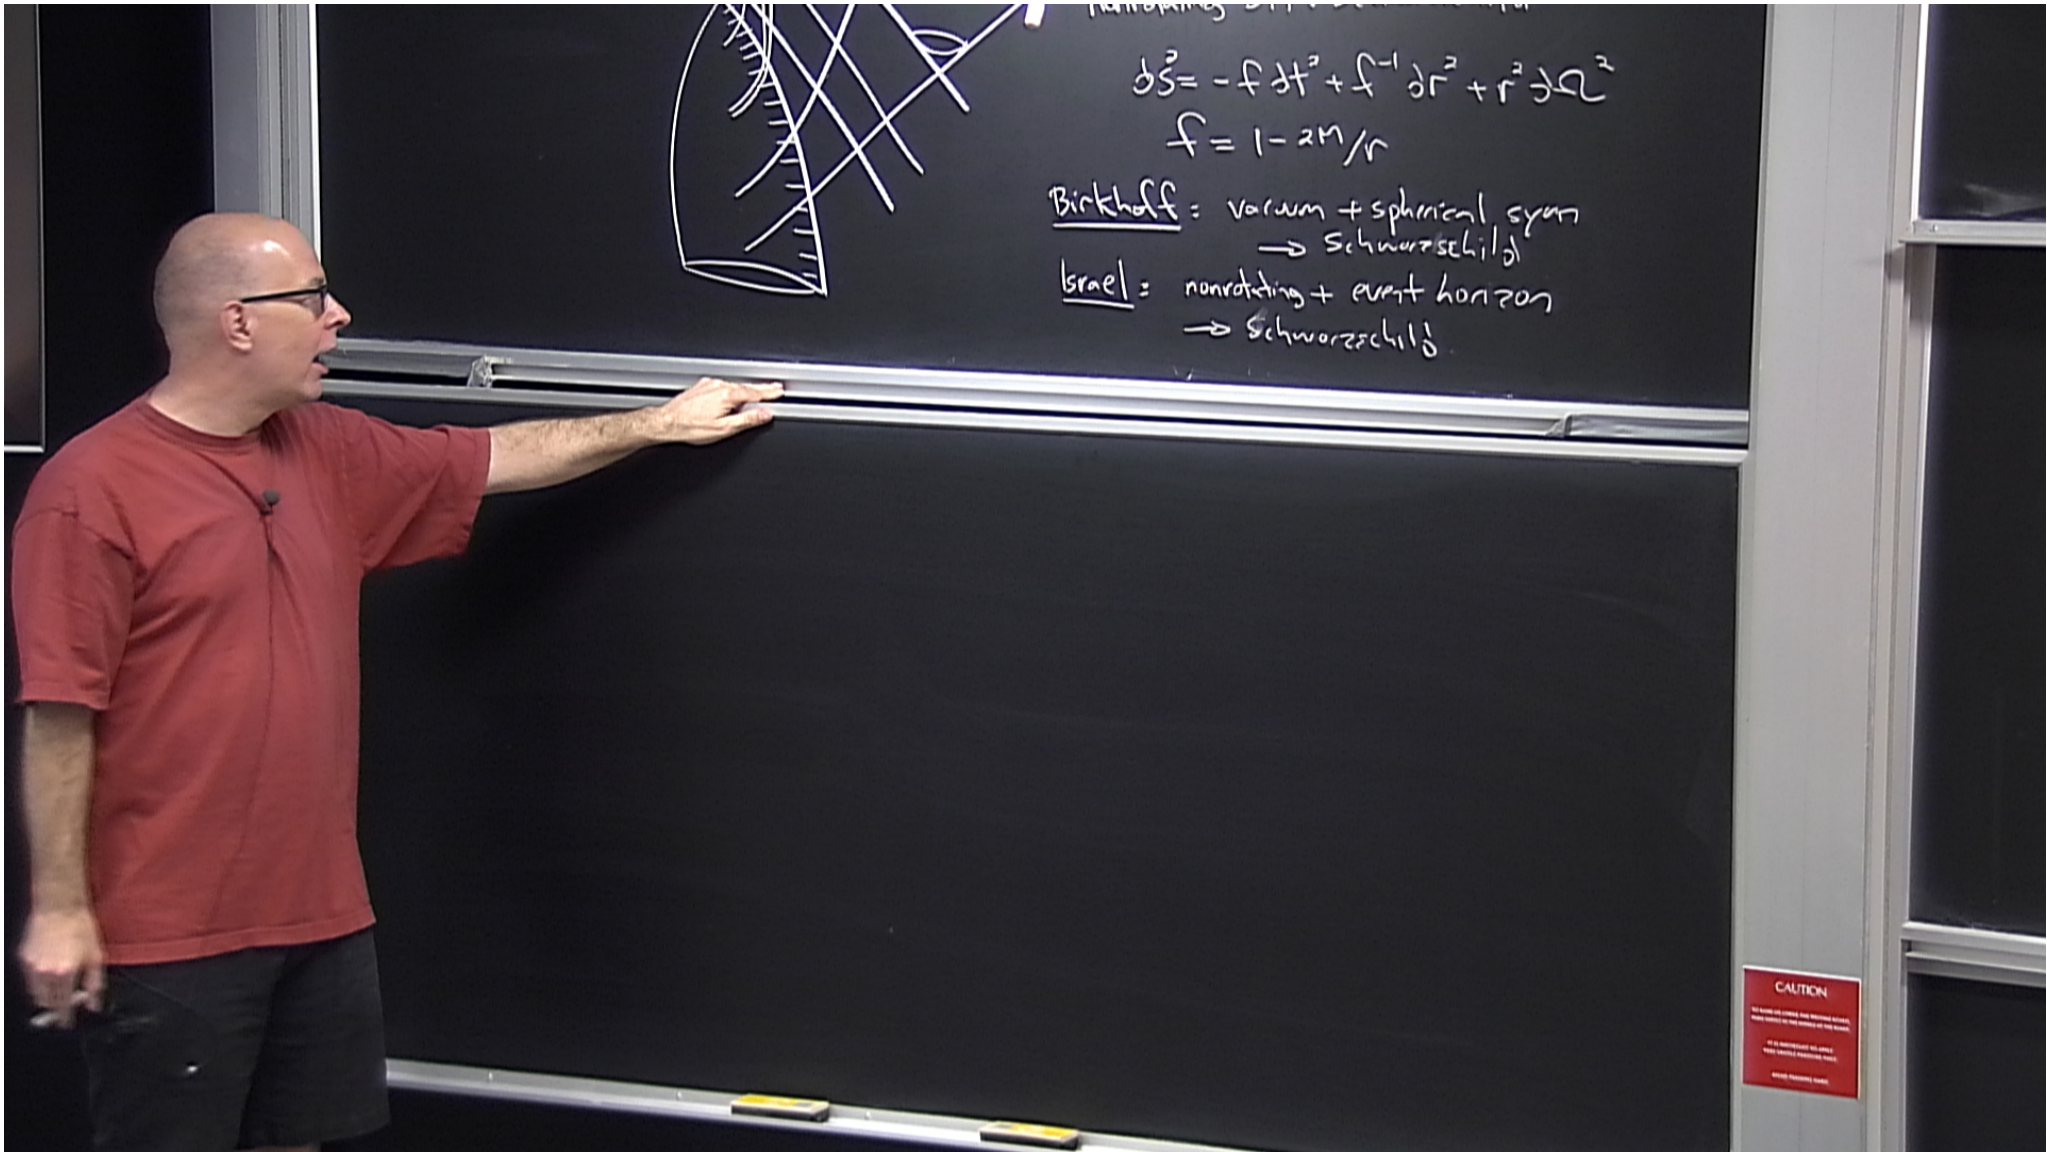 nonrotating BH: Schwarzschild
ds² = - f dt² + f⁻¹ dr² + r² dΩ²
f = 1 - 2M/r
Birkhoff: vacuum + spherical symm
→ Schwarzschild
Israel: nonrotating + event horizon
→ Schwarzschild
CAUTION